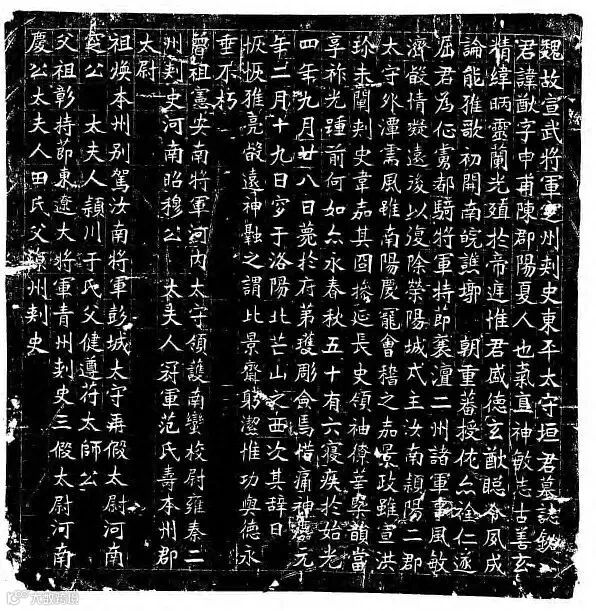 魏故宣武將軍 州刺史東平太守垣君墓誌銘
君諱猷字中甫陳郡陽夏人也氣直神敏志古善玄
精緯昞靈蘭光殖於帝遅惟君咸德玄猷聡令夙成
論能雅歌初開南皖譙瑯 朝重蕃授侂尒詮仁遂
屈君為征虜都騎將軍特節襄澶二州諸軍事風敏
濟毅情凝遠浚以復除榮陽城弌主汝南潁陽二郡
太守外潭雲風雖南陽慶寵會稽之嘉景政雖宣洪
珎未闡刺史韋嘉其固擔延長史領袖傳莘榘韻當
享祚光踵前何如尒永春秋五十有六寝疾於始光
四年九月廿八日薨於府第殯彫僉馬惜痛神 元
年二月十九日穸于洛陽北芒山之西次其辞曰
恢恢雅亮毅遠神融之謂比景齊躬潔惟功與德永
垂不朽
曽祖憲安南將軍河内太守領護南蠻校尉雍秦二
州刺史河南昭穆公 太夫人冠軍范氏壽本州郡
太尉
祖煥本州别駕汝南將軍彭城太守再假太尉河南
定公 太夫人穎川于氏父健遵符太師公
父祖彰持節東遼大將軍青州刺史三假太尉河南
慶公太夫人田氏父 州刺史
大众跨境